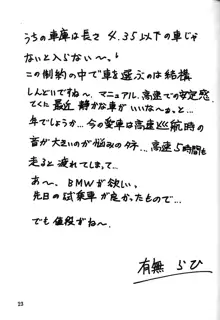 うちの車庫は長さ 4.35以下の車じゃ
ないと入らない〜。
この制約の中で車を選ぶのは結構
しんどいですね〜。マニュアル、高速での安定感、
てくに最近 静かな車がいいな〜。って…
年でしょうか…今の愛車は高速巡航時の
音が大きいのが悩みのタネ…。高速5時間も
走ると疲れてしまって…
あ〜、BMWが欲しい。
先日の試乗車が良かったもので…
でも値段がね〜。
有無らひ
23